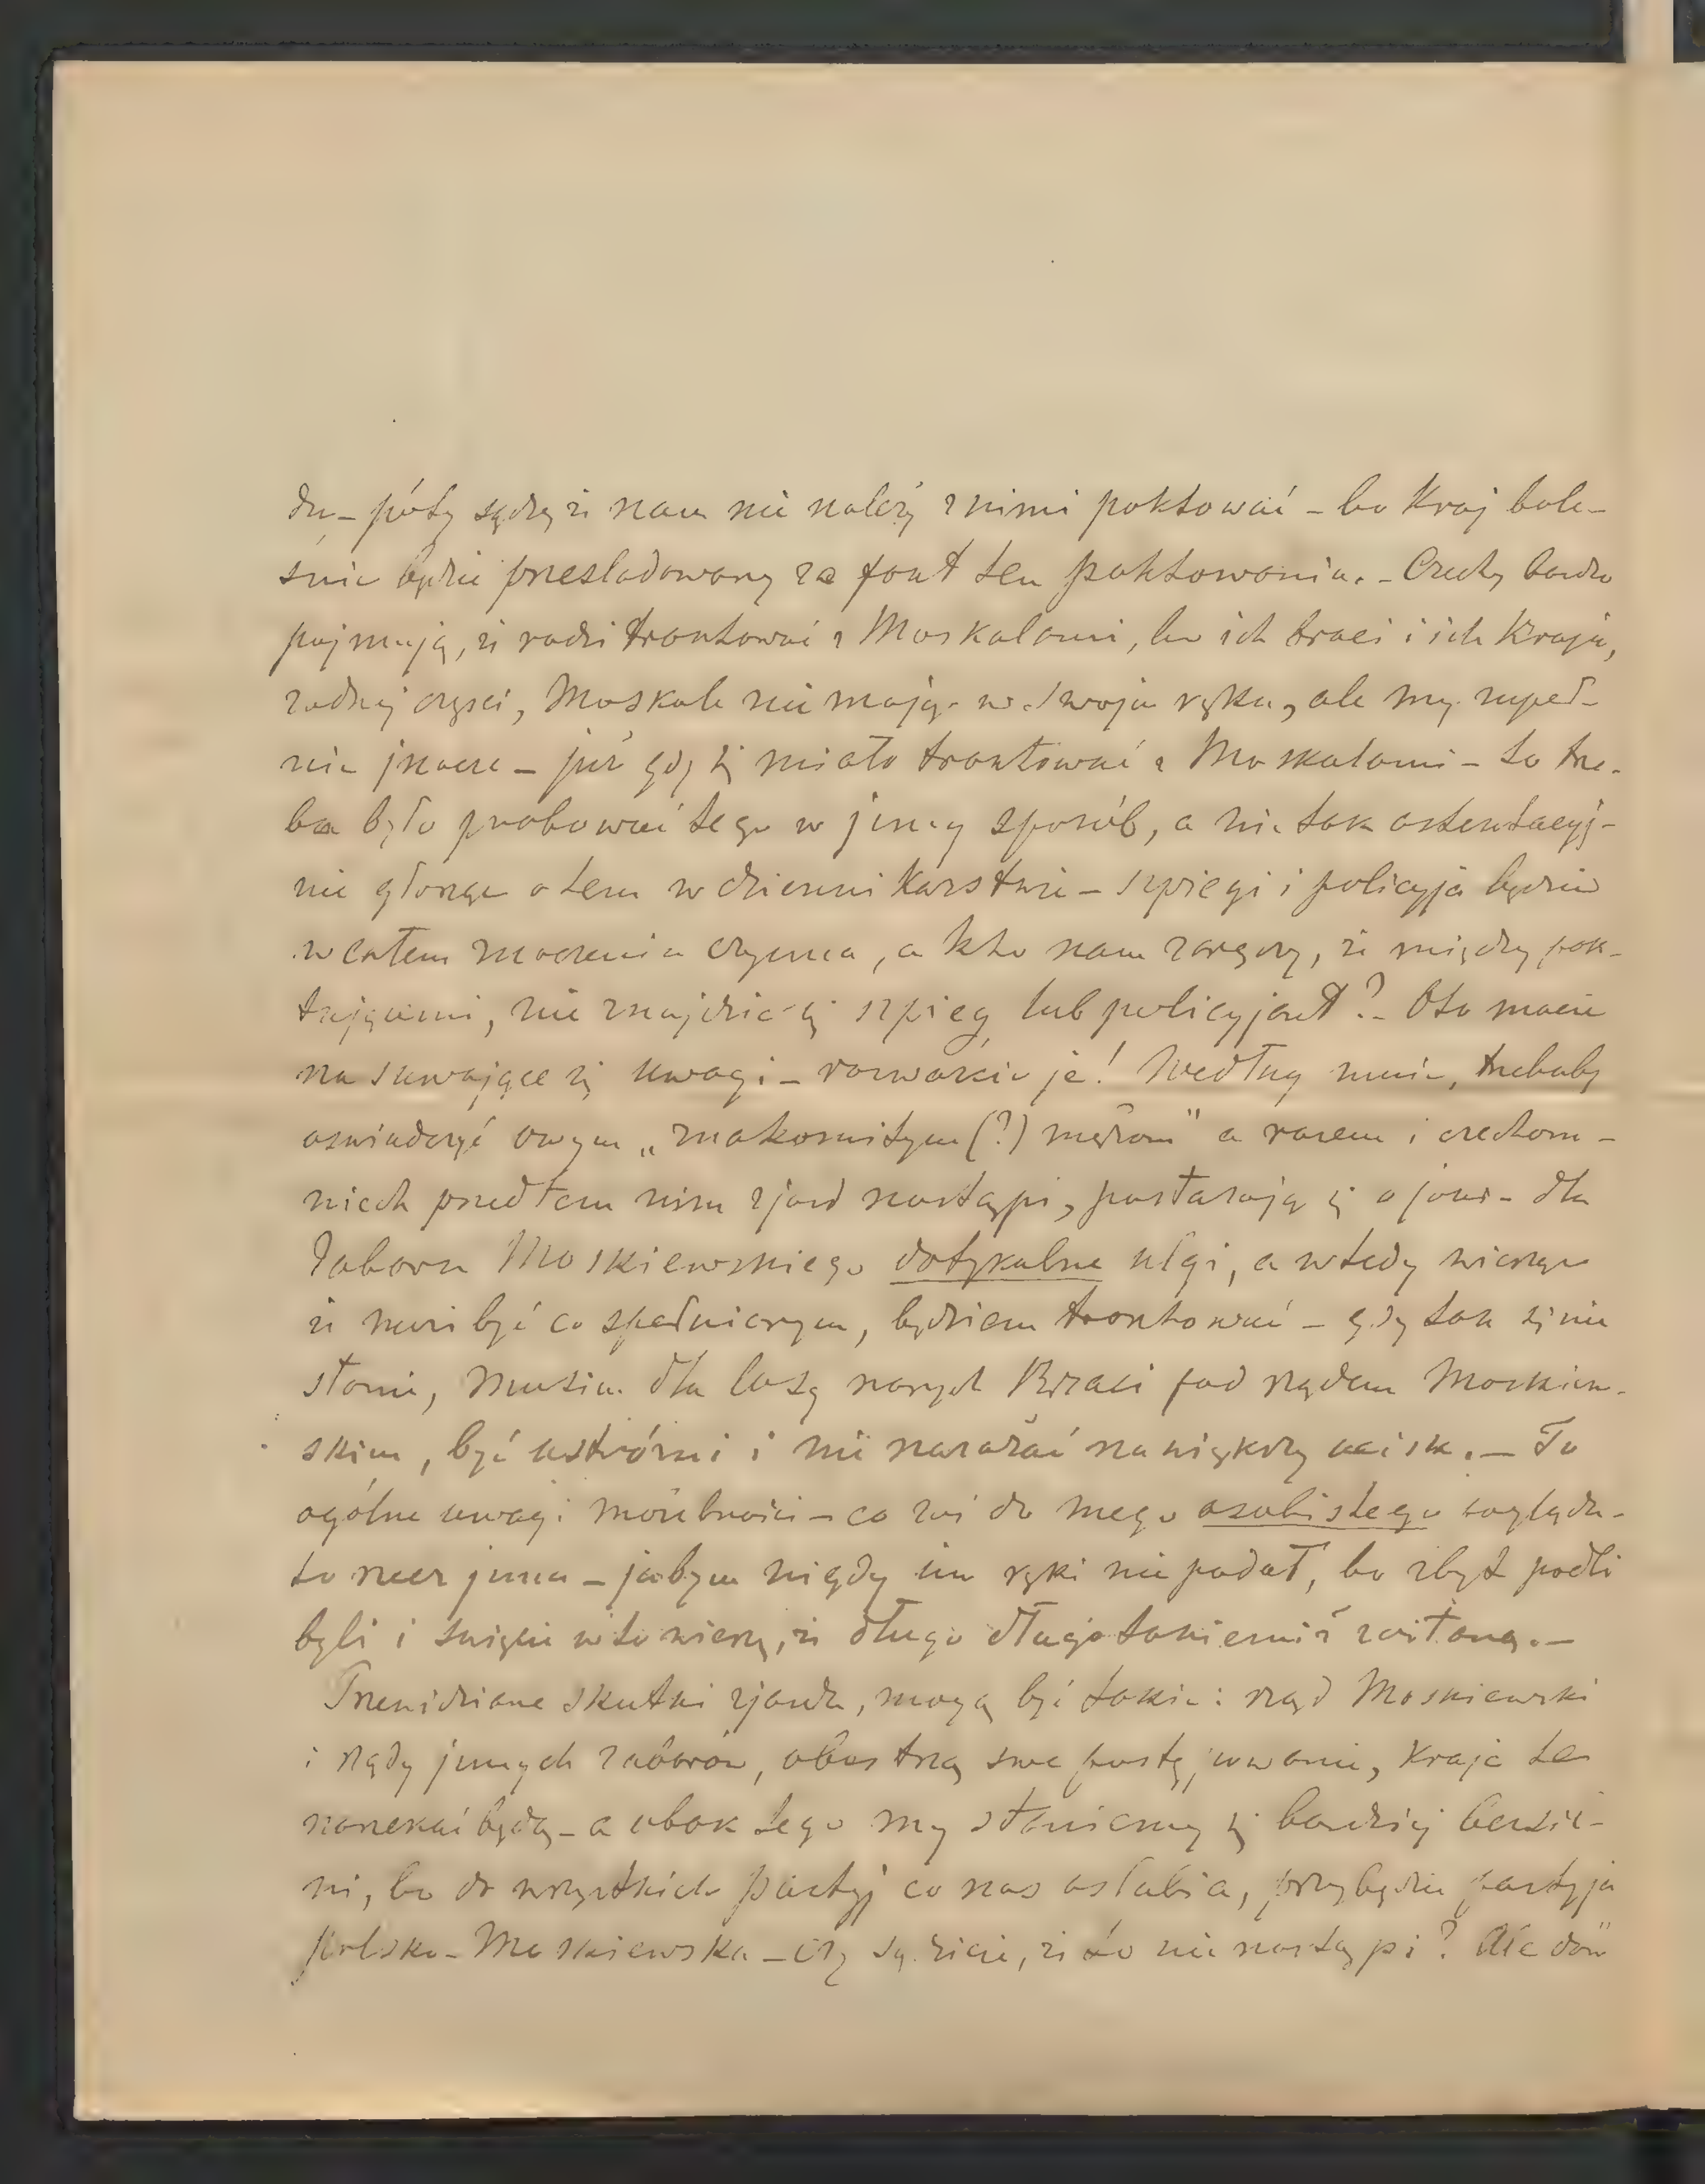 du – póty sądzę że nam nie należy z nimi paktować – bo Kraj bole-
śnie będzie prześladowany za fakt ten paktowania. – Czechy bardzo
pojmują, że radzi traktować z Moskalami, bo ich braci i ich Kraju,
żadnej części, Moskale nie mają w swoju ręku, ale my zupeł-
nie jnacze – już gdy się miało traktować z Moskalami – to trze-
ba było probować tego w jnny sposób, a nie tak ostentacyj-
nie głosząc o tem w dziennikarstwie – szpiegi i policyja będzie
w całem znaczeniu czynna, a kto nam zaręczy, że między pak-
tującemi, nie znajdzie się szpieg lub policyjant? – Oto macie
nasuwające się uwagi – rozważcie je! Według mnie, trzebaby
oświadczyć owym „znakomitym (?) mężom" a razem i czechom –
niech przedtem nim zjazd nastąpi, postarają się o jawne dla
Zaboru Moskiewskiego dotykalne ulgi, a wtedy wierząc
że musi być co spełnionym, będziem traktować – gdy tak się nie
stanie, musim dla losu naszych Braci pod rządem Moskiew-
skim, być ostróżni i nie narażać na większy ucisk. – To
ogólne uwagi możebności – co zaś do mego osobistego względu –
to rzecz jnna – jabym nigdy im ręki nie podał, bo zbyt podli
byli i święcie w to wierzę, że długo długo takiemiż zostaną. –
Przewidziane skutki zjazdu, mogą być takie: rząd Moskiewski
i rządy jnnych zaborów, obostrzą swe postępowanie, Kraje te
narzekać będą – a obok tego my staniemy się bardziej bezsil-
ni, bo do wszystkich partyj co nas osłabia, przybędzie partyja
Polsko-Moskiewska – czy sądzicie, że to nie nastąpi? Ale dość